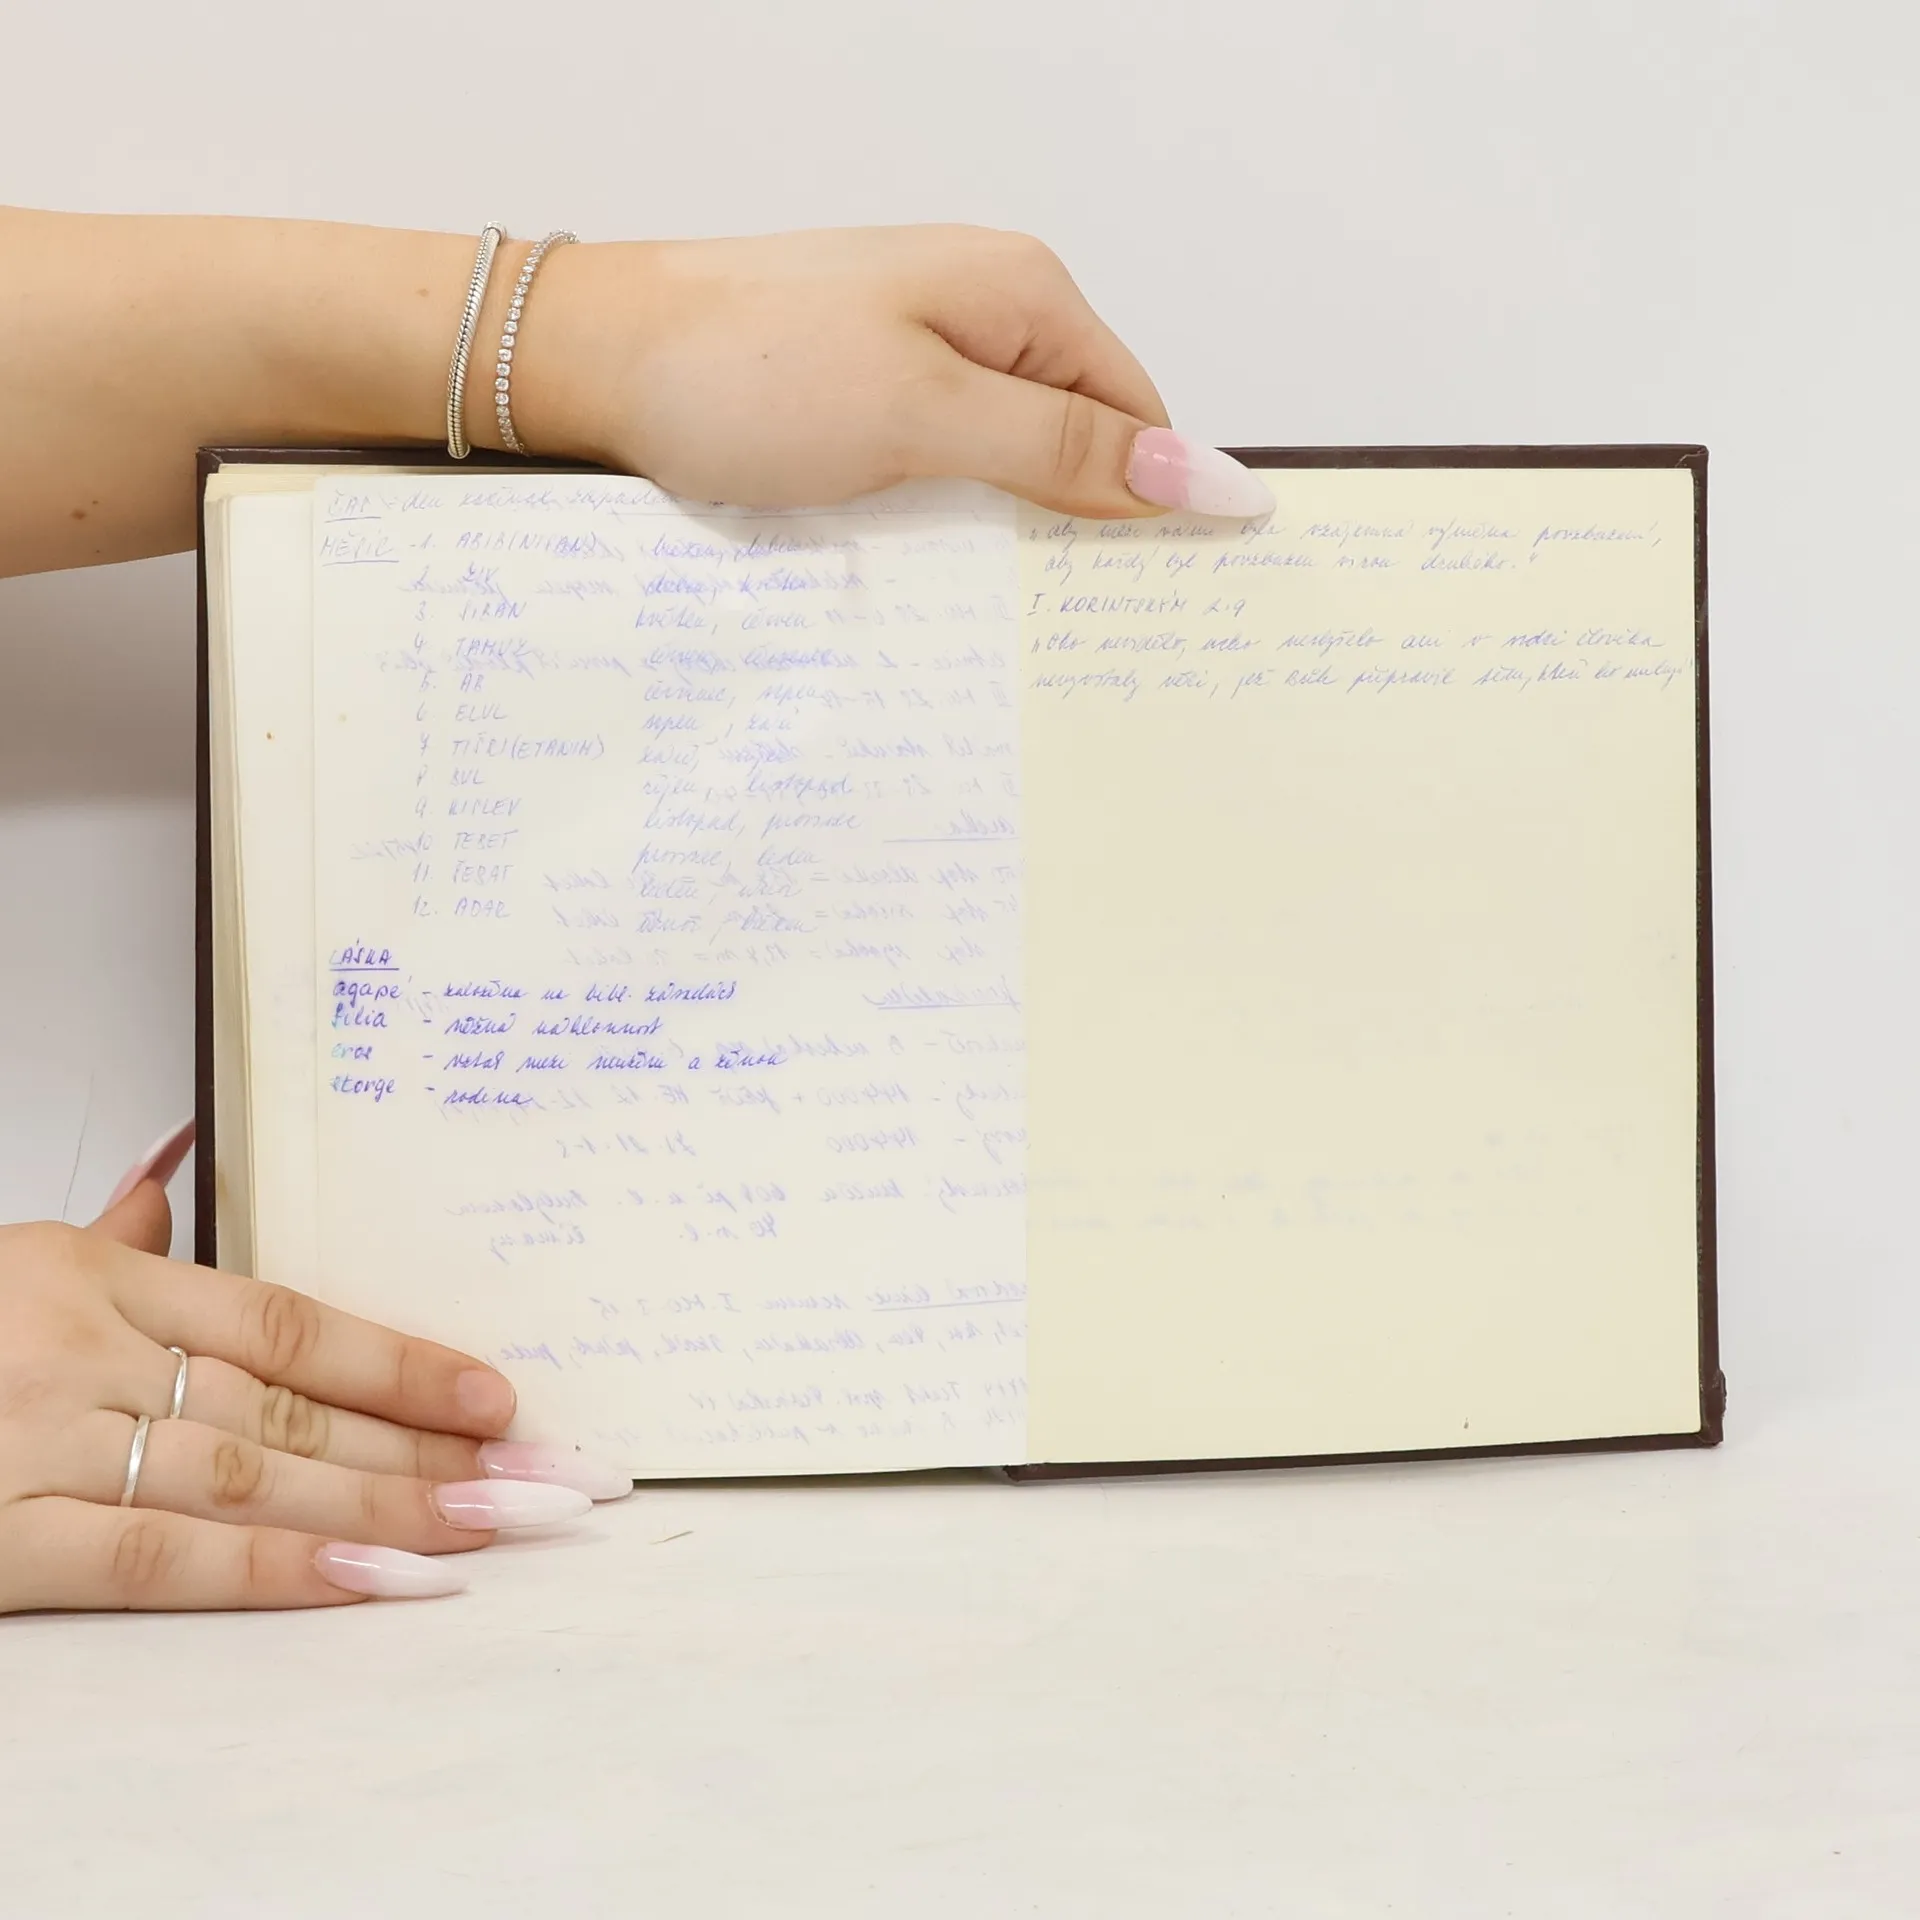 ČAS = den začínal západem
MĚSÍC - 1. ABIB (NISAN) březen, duben
2. ZIV duben, květen
3. SIRAN květen, červen
4. TAMUZ červen, červenec
5. AB červenec, srpen
6. ELUL srpen, září
7 TIŠRI (ETANIM) září, říjen
8. BUL říjen, listopad
9. KISLEV listopad, prosinec
10 TEBET prosinec, leden
11. ŠEBAT leden, únor
12. ADAR únor, březen
LÁSKA
agapé - založena na bibl. zásadách
filia - něžná náklonnost
eros - vztah mezi mužem a ženou
storge - rodina
„aby mezi námi byla vzájemná výměna povzbuzení,
aby každý byl povzbuzen vírou druhého."
I. KORINTSKÝM 2.9
„Oko nevidělo, ucho neslyšelo ani v srdci člověka
nevyvstaly věci, jež Bůh připravil těm, kteří ho milují"